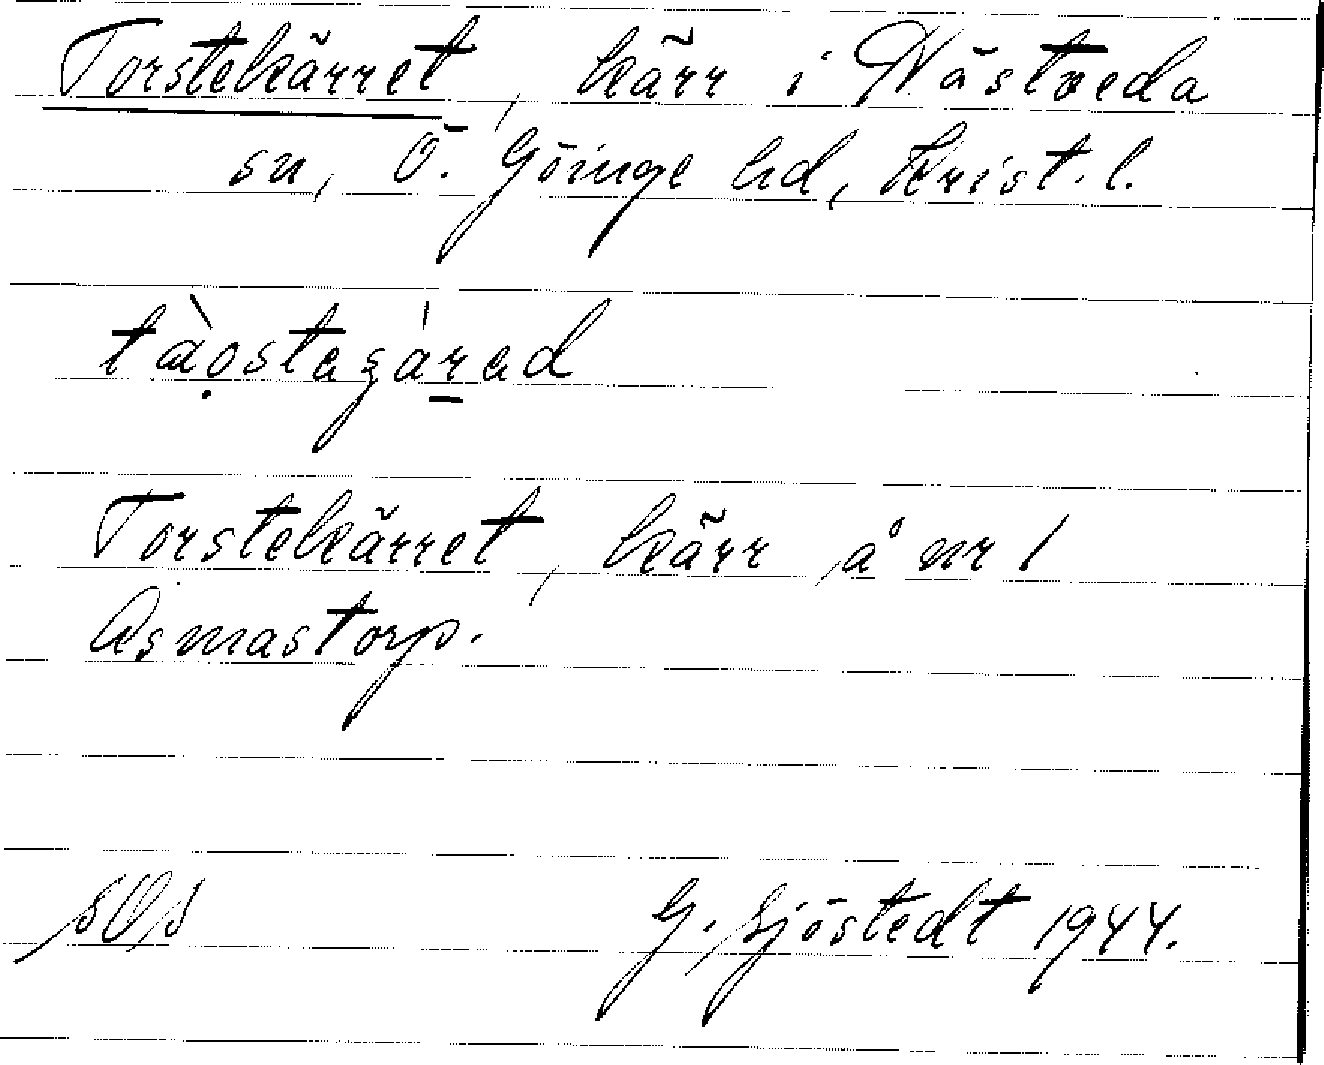 Torstekärret, kärr i Nästveda
sn, Ö. Göinge hd, Krist. l.
Torstekärret, kärr å nr 1
Åsmastorp.
G. Sjöstedt 1944.